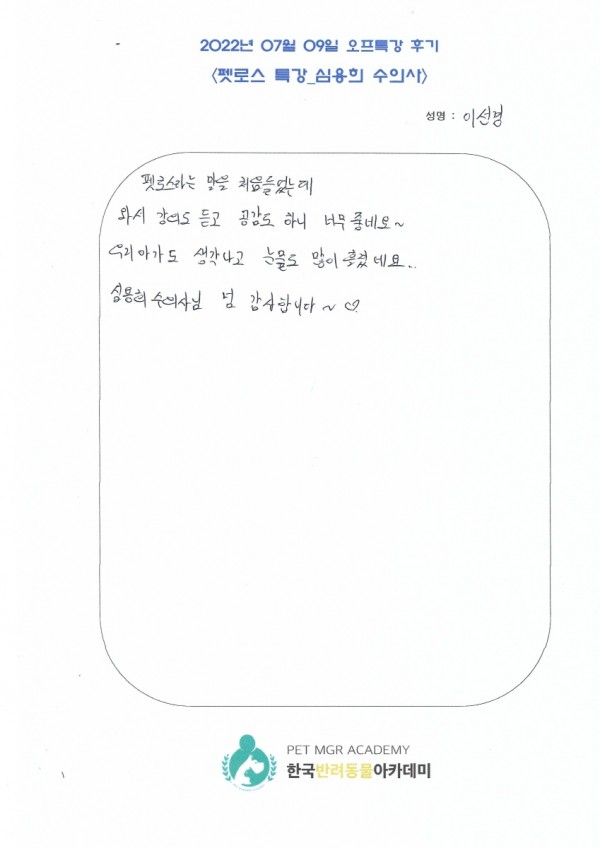 2022년 07월 09일 오프특강 후기
<펫로스 특강_심용희 수의사>
성명 : 이선경
펫로스라는 말을 처음들었는데
와서 강의도 듣고 공감도 하니 너무 좋네요~
우리아가도 생각나고 눈물도 많이 흘렸네요..
심용희 수의사님 넘 감사합니다~ ♡
PET MGR ACADEMY
한국반려동물아카데미